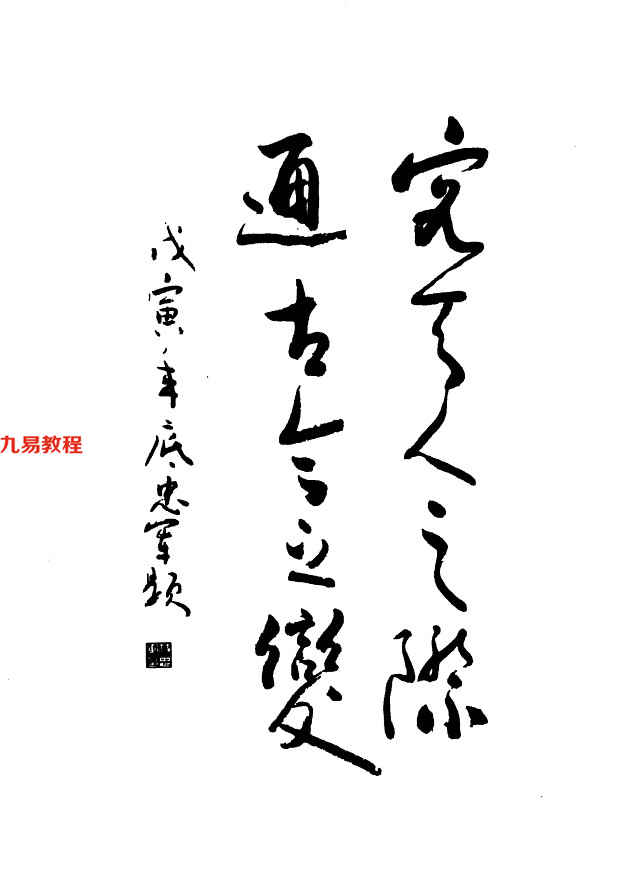 究天人之际
通古今之變
戊寅年底忠军题
九易教程